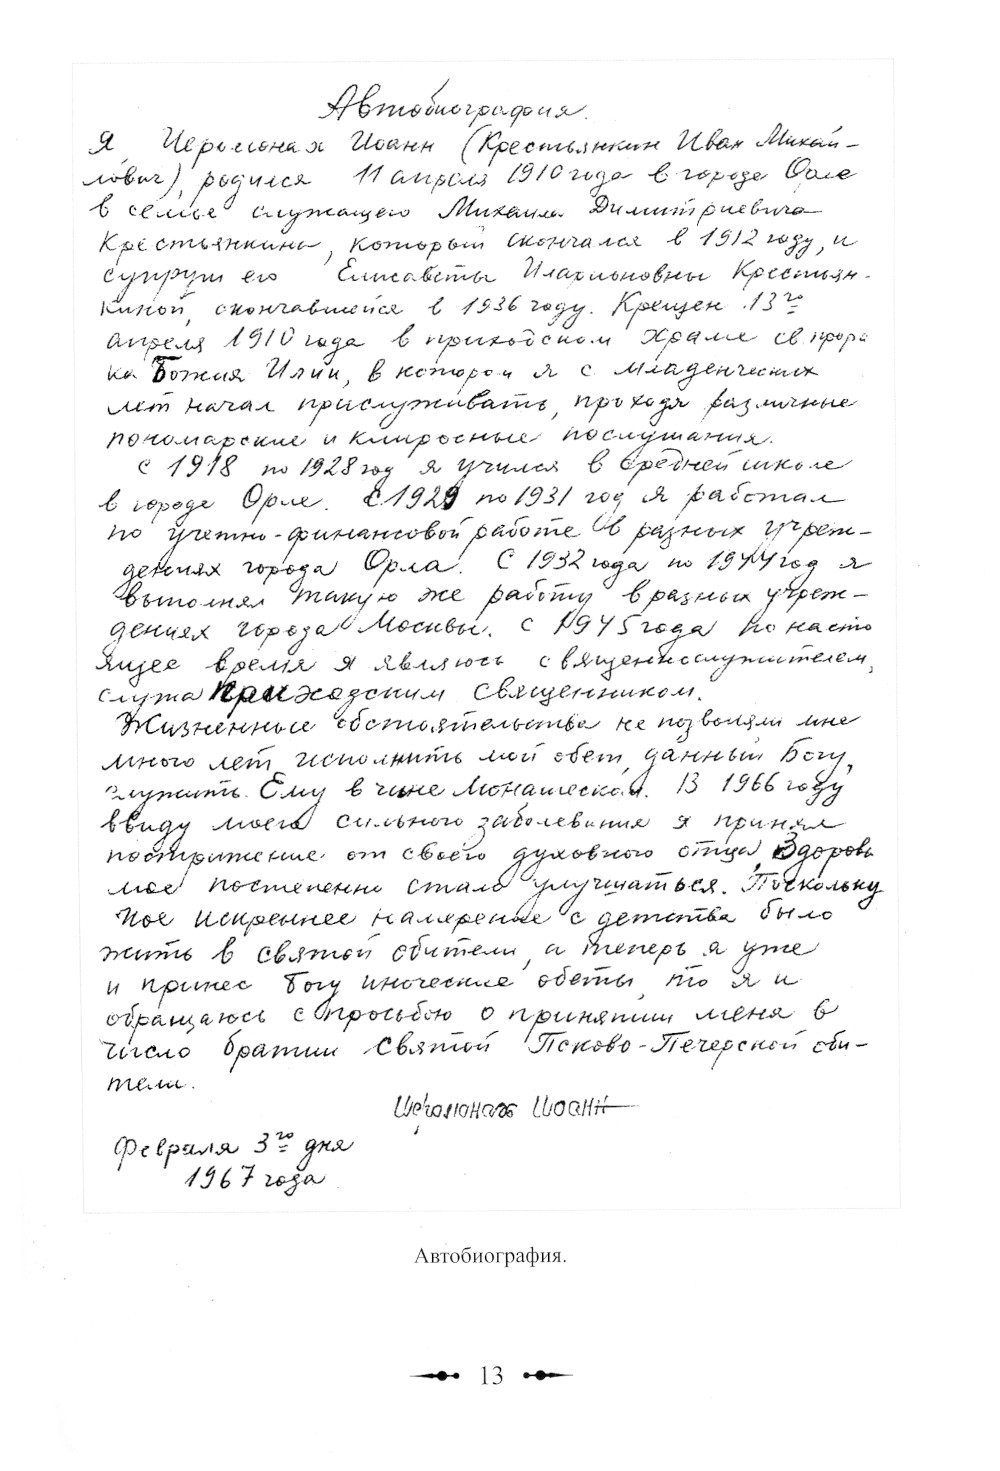 Автобиография.
Я Иеромонах Иоанн (Крестьянкин Иван Михай-
лович), родился 11 апреля 1910 года в городе Орле
в семье служащего Михаила Димитриевича
Крестьянкина, который скончался в 1912 году, и
супруги его Елисаветы Иларионовны Крестьян-
киной, скончавшейся в 1936 году. Крещен 13го
апреля 1910 года в приходском храме св. проро
ка Божия Илии, в котором я с младенческих
лет начал прислуживать, проходя различные
пономарские и клиросные послушания.
С 1918 по 1928 год я учился в средней школе
в городе Орле. С 1929 по 1931 год я работал
по учетно-финансовой работе в разных учреж-
дениях города Орла. С 1932 года по 1944 год я
выполнял такую же работу в разных учреж-
дениях города Москвы. С 1945 года по насто
ящее время я являюсь священнослужителем,
служа приходским священником.
Жизненные обстоятельства не позволяли мне
много лет исполнить мой обет, данный Богу,
служить Ему в чине монашеском. В 1966 году
ввиду моего сильного заболевания я принял
пострижение от своего духовного отца, Здоровье
мое постепенно стало улучшаться. Поскольку
мое искреннее намерение с детства было
жить в святой обители, а теперь я уже
и принес Богу иноческие обеты, то я и
обращаюсь с просьбою о принятии меня в
число братии Святой Псково-Печерской оби-
тели.
Иеромонах Иоанн
Февраля 3го дня
1967 года
Автобиография.
13